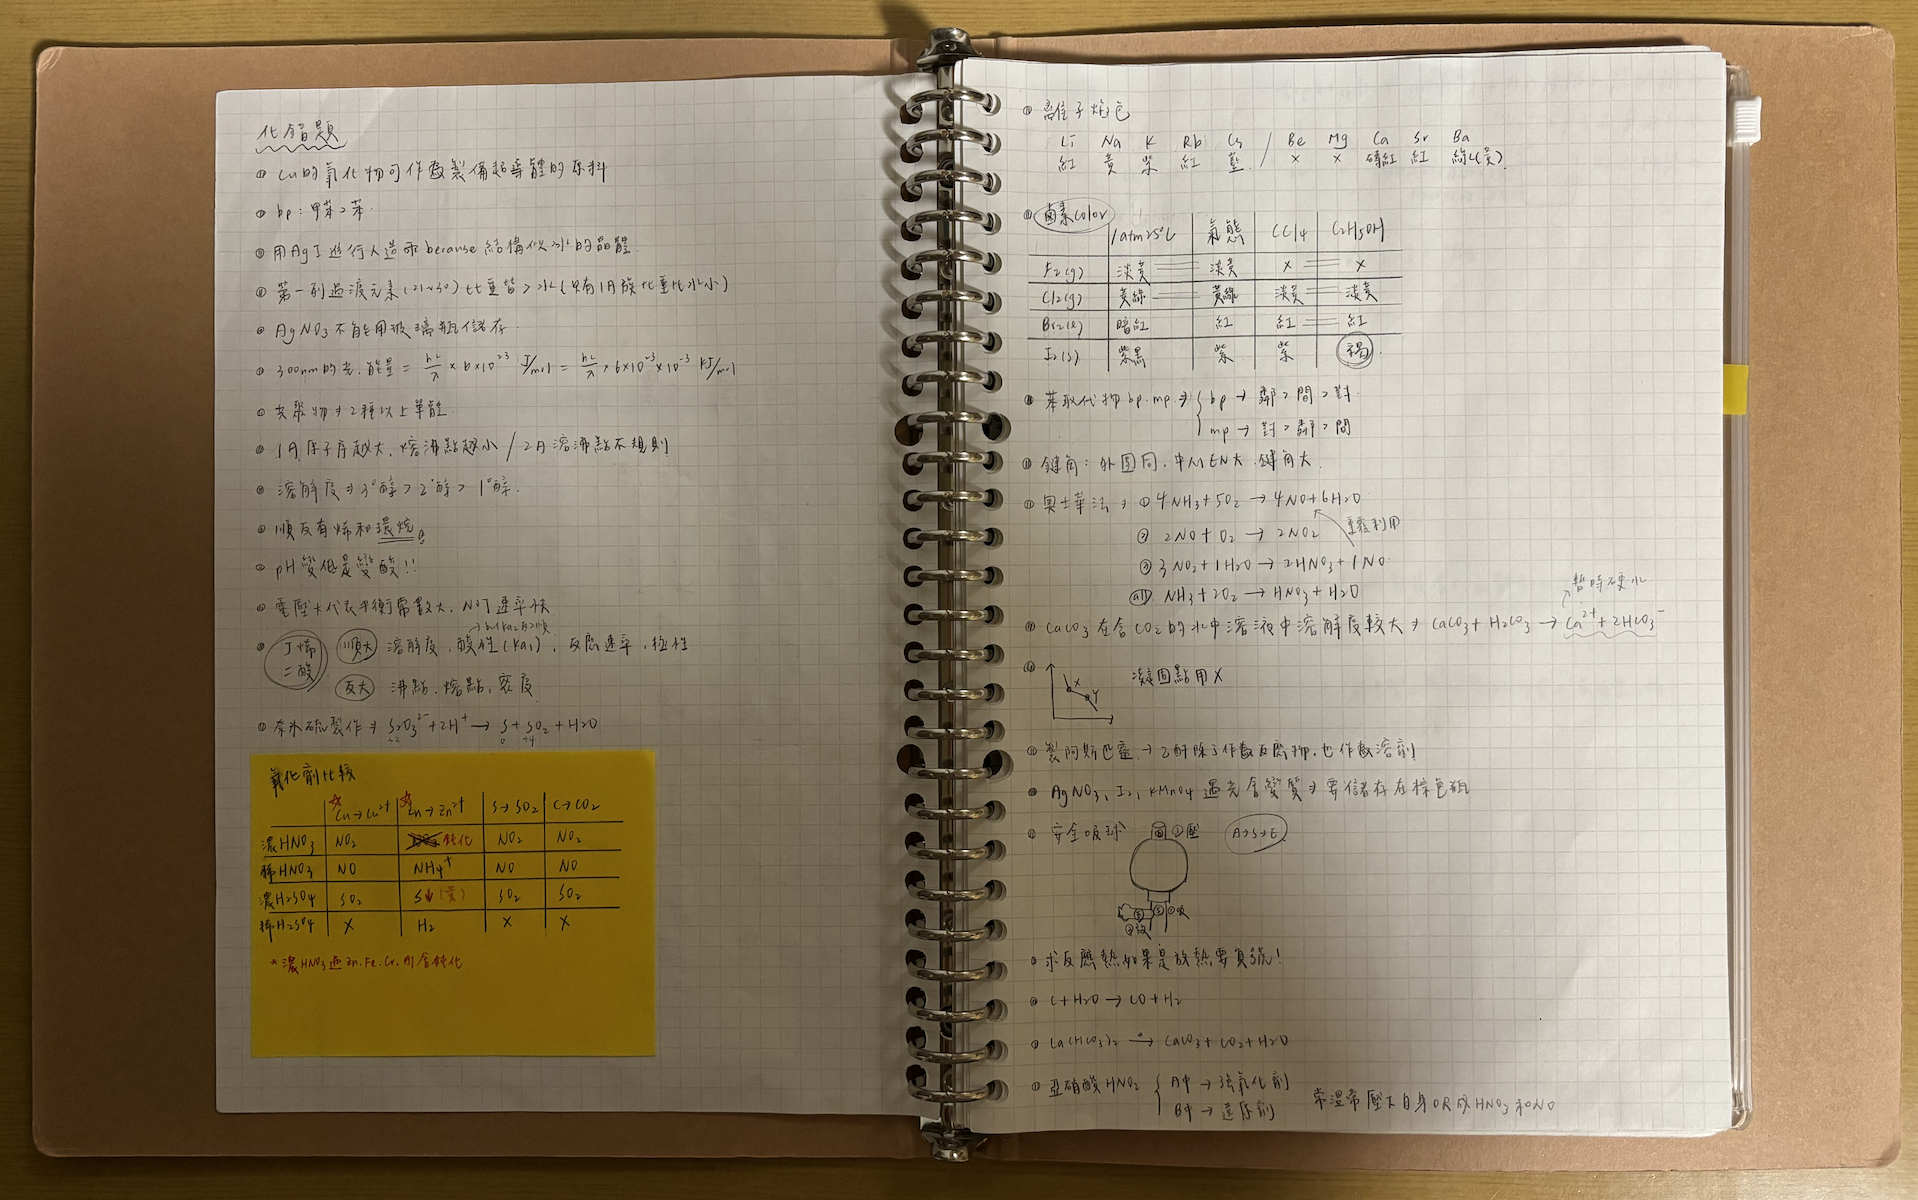 化錯題
Cu的氧化物可作為製備超導體的原料
bp：甲苯＞苯
用AgI進行人造雨because結構似冰的晶體
第一列過渡元素(21~30)比重皆＞水(只有1A族比重比水小)
AgNO3不能用玻璃瓶儲存
300nm的光.能量 = hc/λ × 6×10^23 J/mol = hc/λ × 6×10^-3 × 10^-3 KJ/mol
共聚物→2種以上單體
1A原子序越大、熔沸點越小 / 2A溶沸點不規則
溶解度→3°醇＞2°醇＞1°醇.
順反有烯和環烷
pH變低是變酸!!
電壓大代表平衡常數大、NOT速率快
→but Ka2反>順
丁烯二酸 順大 溶解度、酸性(Ka1)、反應速率、極性
反大 沸點、熔點、密度
奈米硫製作→ S2O3^2- + 2H+ → S + SO2 + H2O
+2 0 +4
氧化劑比較
Cu→Cu2+ Zn→Zn2+ S→SO2 C→CO2
濃HNO3 NO2 鈍化 NO2 NO2
稀HNO3 NO NH4+ NO NO
濃H2SO4 SO2 S↓(黃) SO2 SO2
稀H2SO4 X H2 X X
*濃HNO3遇Zn.Fe.Cr.Al會鈍化
離子焰色
Li Na K Rb Cs / Be Mg Ca Sr Ba
紅 黃 紫 紅 藍 / x x 磚紅 紅 綠(黃)
鹵素color
1atm25°C 氣態 CCl4 C2H5OH
F2(g) 淡黃 淡黃 x x
Cl2(g) 黃綠 黃綠 淡黃 淡黃
Br2(l) 暗紅 紅 紅 紅
I2(s) 紫黑 紫 紫 褐
苯取代物bp.mp→ bp→鄰>間>對
mp→對>鄰>間
鍵角：外圍同，中心EN大.鍵角大.
奧士華法→① 4NH3+5O2→4NO+6H2O
重複利用
② 2NO+O2→2NO2
③ 3NO2+1H2O→2HNO3+1NO
all NH3+2O2→HNO3+H2O
暫時硬水
CaCO3在含CO2的水中溶液中溶解度較大→CaCO3+H2CO3→Ca2+ + 2HCO3-
X Y 凝固點用X
製阿斯匹靈→乙酐除了作為反應物，也作為溶劑
AgNO3、I2、KMnO4遇光會變質→要儲存在棕色瓶
安全吸球 ①壓 A→S→E
②吸
③放
求反應熱如果是放熱要負號!
C+H2O→CO+H2
Ca(HCO3)2→CaCO3+CO2+H2O
亞硝酸HNO2 A中→強氧化劑
B中→還原劑 常溫常壓下自身OR成HNO3和NO